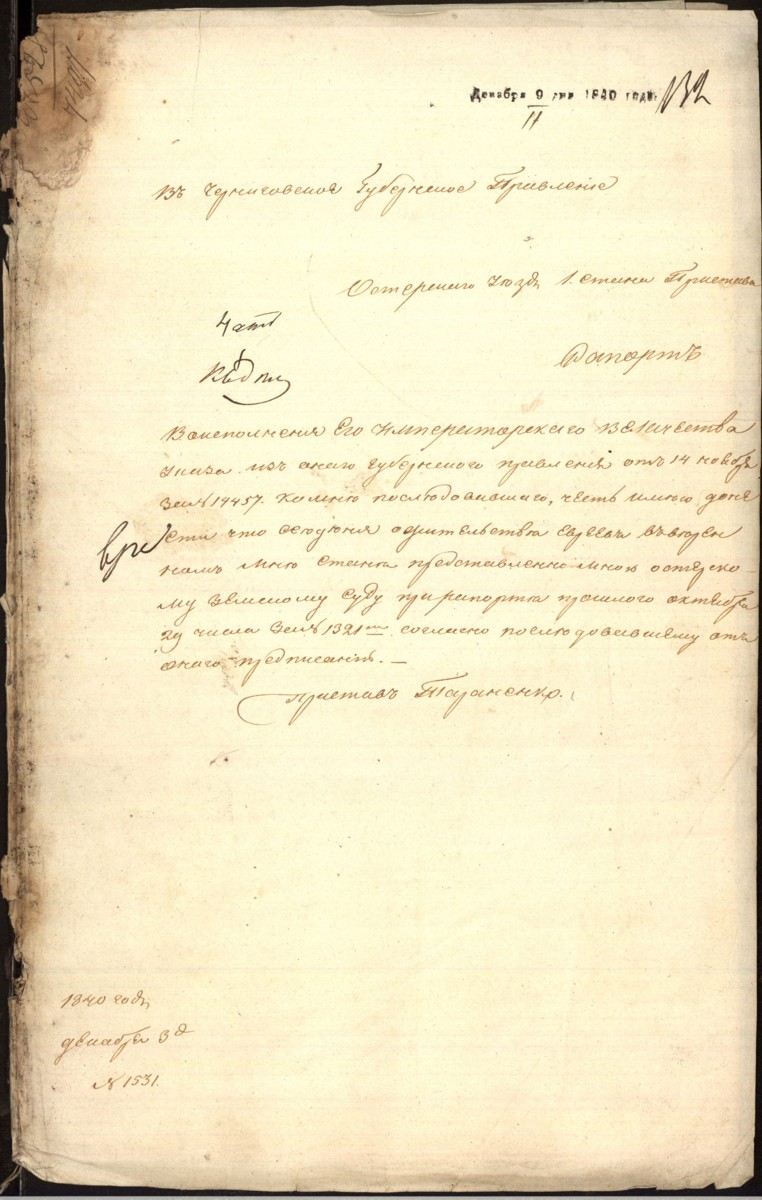 Декабря 9 дня 1840 года
132
II
Въ Черниговское Губернское Правление
Остерскаго уезда 1. стана Пристава
Рапортъ
Во исполнения Его Императорскаго Величества
указа изъ онаго губернского правления отъ 14 ноября
за № 14457. ко мню послюдовавшаго, честь имюю доне
сти что
жительства Евреевъ въ ввюрен
номъ мню стане представленно мною остерско-
му земскому суду при рапорте прошлого октября
29 числа за № 1321 согласно послюдовавшему отъ
онаго предписанию. —
Приставъ Тараненко.
1840 года
декабря 3 д
№ 1531.